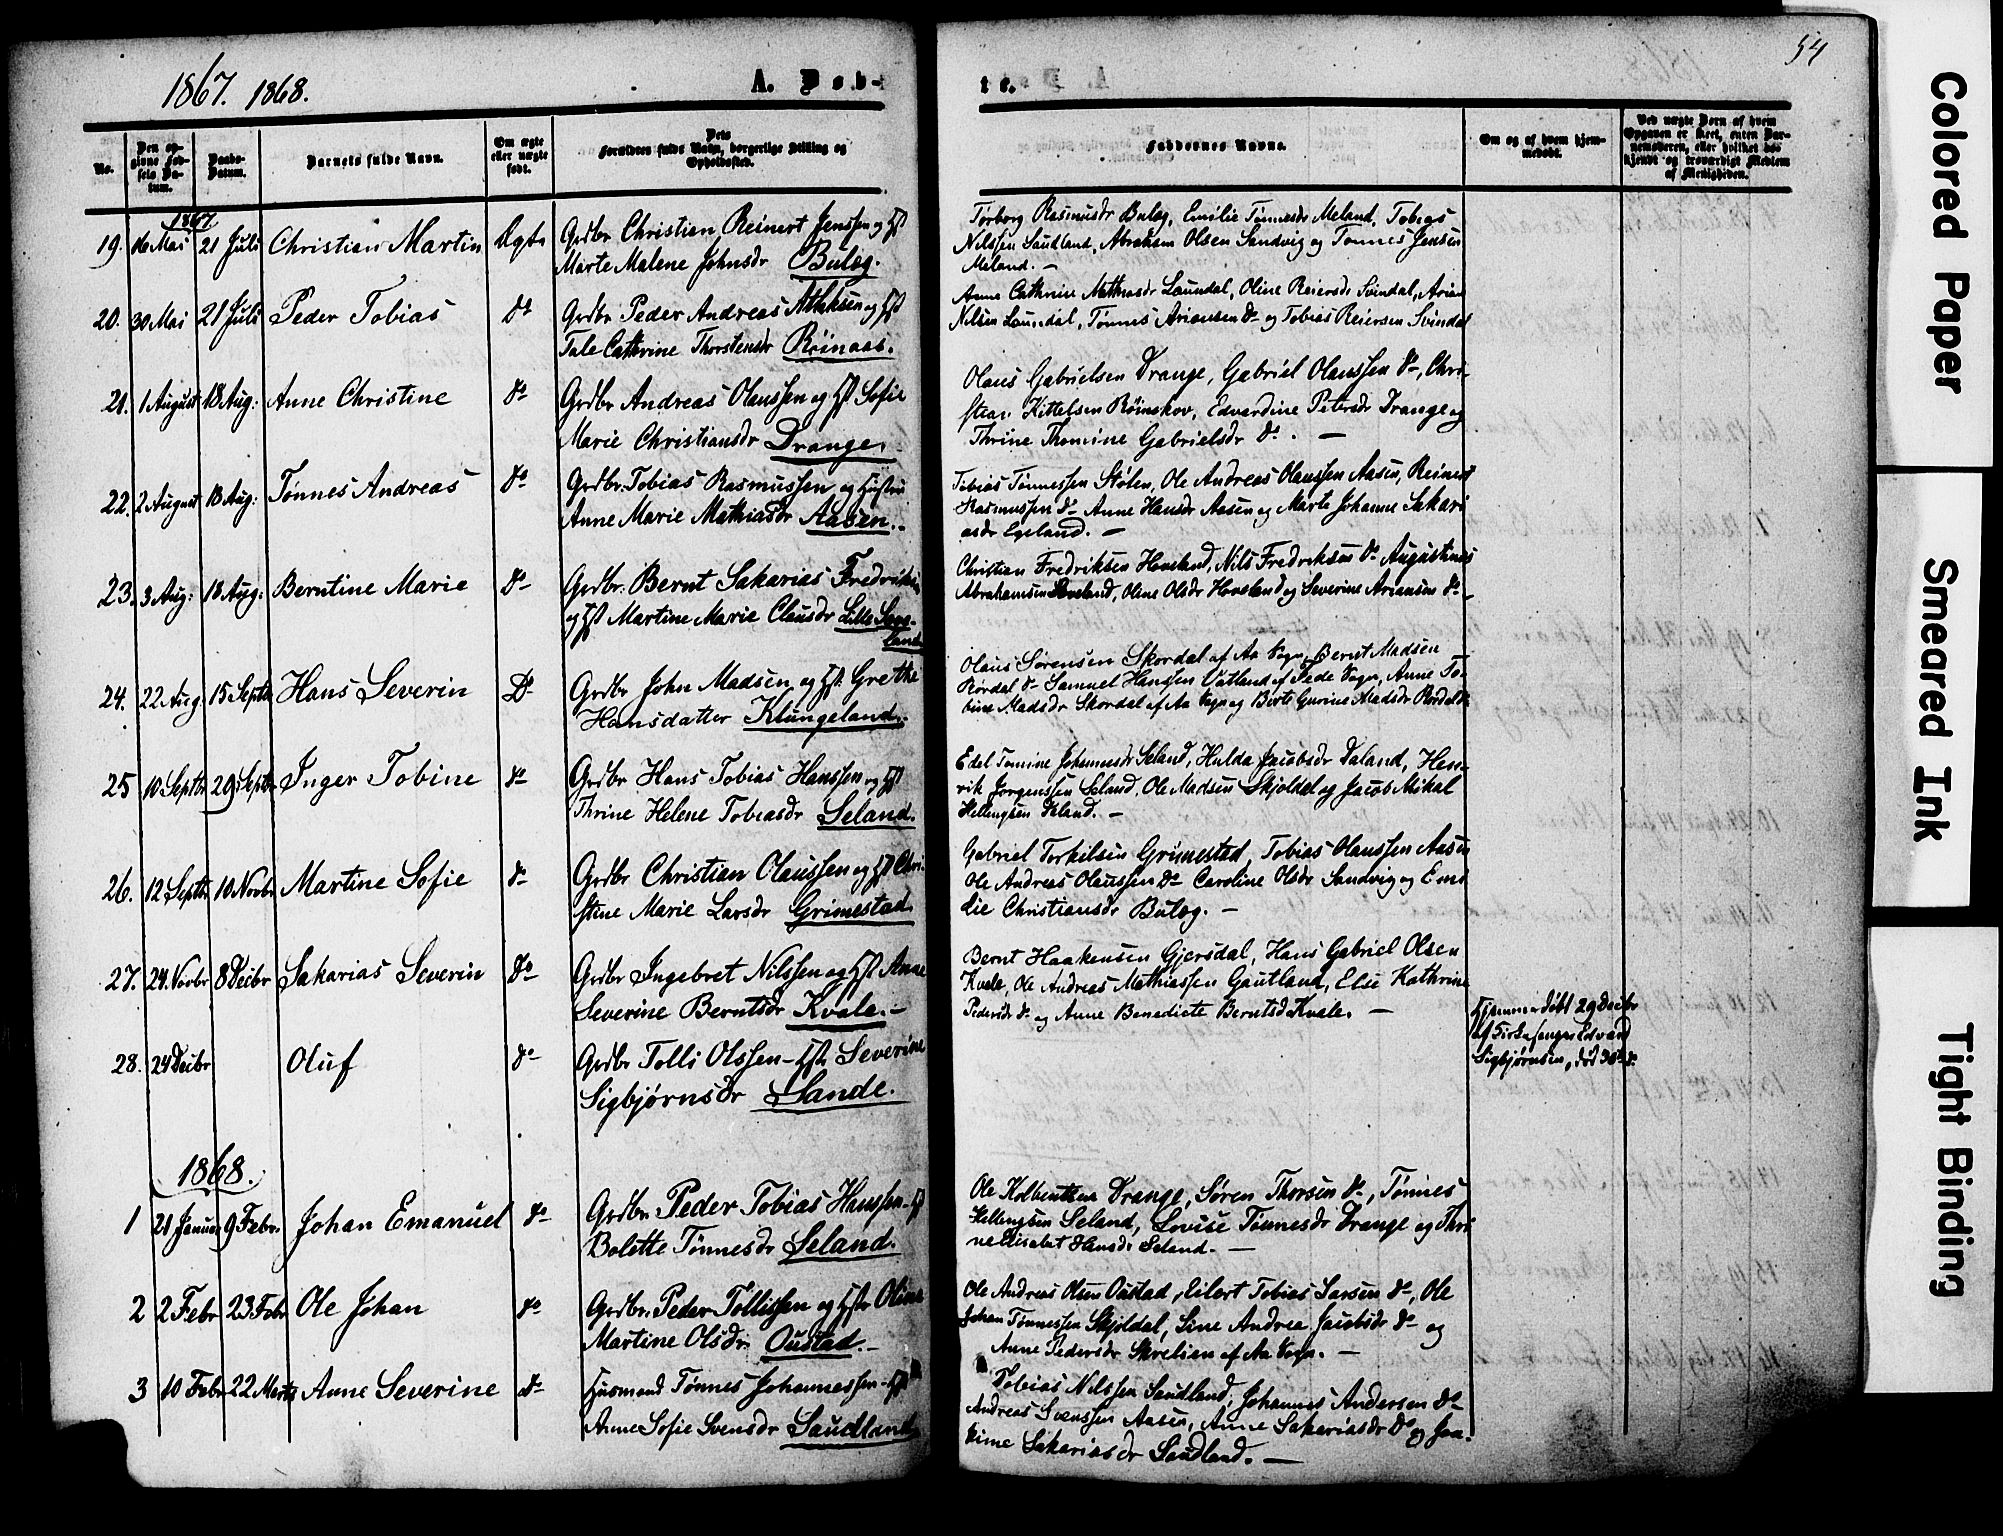 1867. 1868.
A. Døb-
te.
54
No.
Den op-
givne Fød-
sels Da-
tum.
Daabs-
Datum.
Barnets fulde Navn.
Om ægte
eller uægte
født.
Dets
Forældres fulde Navn, borgerlige Stilling og
Opholdssted.
Faddernes Navne.
Om og af hvem hjem-
medøbt.
Ved uægte Børn af hvem
Opgaven er skeet, enten Bar-
nemoderen, eller hvilket bes
kjendt og troværdigt Medlem
af Menigheden.
1867
19. 16 Mai 21 Juli Christian Martin Ægte Grdbr Christian Reinert Jenssen og Hst
Marte Malene Johnsdr Bulæg.
Torborg Rasmusdr Bulæg, Emilie Tønnesdr Meland, Tobias
Nilssen Saudland, Abraham Olsen Sandvig og Tønnes Jensen
Meland. —
20. 30 Mai 21 Juli Peder Tobias Do Grdbr Peder Andreas Atlaksen og Hst
Tale Cathrine Thorstensdr Röinaas.
Anne Cathrine Mathiasdr Laundal, Oline Reiersdr Svindal, Arian
Nilsen Laundal, Tønnes Ariansen Do og Tobias Reiersen Svindal
21. 1 August 18 Aug: Anne Christine do Grdbr Andreas Olaussen og Hst Sofie
Marie Christiansdr Drange.
Olaus Gabrielsen Drange, Gabriel Olaussen do, Chri-
stian Kittelsen Röinskov, Edvardine Petersdr Drange og
Thrine Thomine Gabrielsdr do. —
22. 2 August 18 Aug: Tønnes Andreas do Grdbr. Tobias Rasmussen og Hustru
Anne Marie Mathiasdr Aasen.
Tobias Tønnessen Stølen, Ole Andreas Olaussen Aasen, Reinert
Rasmussen do Anne Hansdr Aasen og Marte Johanne Sakari
asdr Egeland. —
23. 3 Aug: 18 Aug: Berntine Marie do Grdbr. Bernt Sakarias Fredriksen
og Hst Martine Marie Clausdr Lille
land.
Christian Fredriksen Hoveland, Nils Fredriksen do Augustinus
Abrahamsen Oveland, Oline Olsdr Hoveland og Severine Ariansen do —
24. 22 Aug 15 Septbr Hans Severin Do Grdbr John Madsen og Hst Grethe
Hansdatter Klungeland.
Olaus Sørensen Skordal af Aa Sogn, Bernt Madsen
Rördal do Samuel Hanssen Vatland af Fede Sogn, Anne To-
bine Madsdr Skordal af Aa Sogn og Berte Gurine Madsdr Rördal do
25 10 Septbr 29 Septbr Inger Tobine do Grdbr Hans Tobias Hanssen og Hst
Thrine Helene Tobiasdr Seland.
Edel Tomine Johannesdr Seland, Hulda Jacobsdr Daland, Hen-
rik Jørgenssen Seland, Ole Madsen Skjoldal og Jacob Mikal
Hellengsen Seland. —
26. 12 Septbr 10 Novbr Martine Sofie do Grdbr Christian Olaussen og Hst Chri-
stine Marie Larsdr Grimestad.
Gabriel Torkilsen Grimestad, Tobias Olaussen Aasen
Ole Andreas Olaussen Do Caroline Olsdr Sandvig og Emi
lie Christiansdr Bulæg. —
27. 24 Novbr 8 Decbr Sakarias Severin do Grdbr Ingebret Nilssen og Hst Anne
Severine Berntsdr Kvale. —
Bernt Haakensen Gjersdal, Hans Gabriel Olsen
Kvale, Ole Andreas Mathiassen Gautland, Elie Kathrine
Pedersdr do og Anne Benedicte Berntsd Kvale. —
28. 24 Decbr Oluf do Grdbr Tolli Olssen – Hst Severine
Sigbjørnsdr Sande.
Hjemmedøbt 29 Decbr
af Kirkesanger Edvard
Sigbjørnsen, död 30te do
1868.
1 21 Januar 9 Febr. Johan Emanuel do Grdbr Peder Tobias Hanssen – Hst
Bolette Tønnesdr Seland.
Ole Kolbentsen Drange, Søren Thorsen do, Tønnes
Hellengsen Seland, Lovise Tønnesdr Drange og Thri
ne Elisabet Hansdr Seland. —
2 2 Febr 23 Febr Ole Johan do Grdbr. Peder Tollissen og Hst Oline
Martine Olsdr Oustad. —
Ole Andreas Olsen Oustad, Eilert Tobias Larsen do, Ole
Johan Tønnessen Skjoldal, Sine Andrea Jacobsdr do og
Anne Pedersdr Skrelian af Aa Sogn. —
3 10 Febr 22 Marts Anne Severine do Husmand Tønnes Johannessen – Hst
Anne Sofie Svensdr Saudland
Tobias Nilssen Saudland, Johannes Andersen do
Andreas Svenssen Aasen, Anne Sakariasdr do og Joa-
kime Sakariasdr Saudland. —
Colored Paper
Smeared Ink
Tight Binding